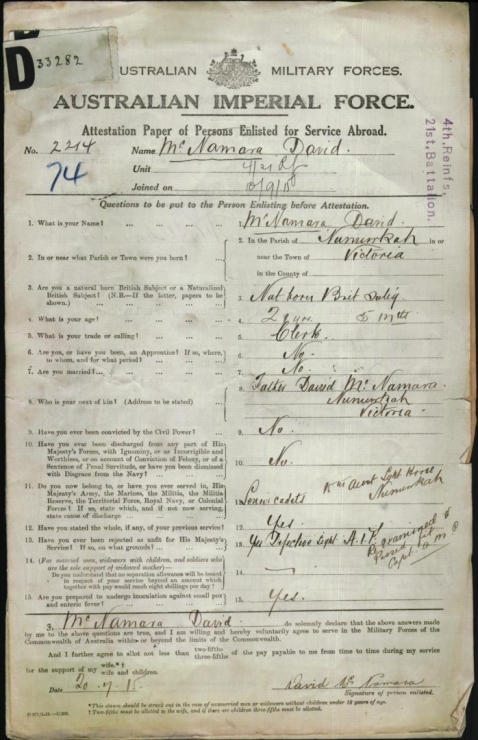 D 33282
AUSTRALIAN MILITARY FORCES.
AUSTRALIAN IMPERIAL FORCE.
Attestation Paper of Persons Enlisted for Service Abroad.
No. 2214 Name McNamara David.
74 Unit
Joined on
4th. Reinfs,
21st. Battalion.
Questions to be put to the Person Enlisting before Attestation.
1. What is your Name? ... 1. McNamara David.
2. In or near what Parish or Town were you born? ... 2. In the Parish of Numurkah in or
near the Town of Victoria
in the County of
3. Are you a natural born British Subject or a Naturalized
British Subject? (N.B.—If the latter, papers to be
shown.) 3. Nat born Brit Subj.
4. What is your age? ... 4. 5 mths
5. What is your trade or calling? ... 5. Clerk.
6. Are you, or have you been, an Apprentice? If so, where,
to whom, and for what period? ... 6. No.
7. Are you married? ... 7. No.
8. Who is your next of kin? (Address to be stated) 8. Father David McNamara.
Numurkah
Victoria.
9. Have you ever been convicted by the Civil Power? ... 9. No.
10. Have you ever been discharged from any part of His
Majesty's Forces, with Ignominy, or as Incorrigible and
Worthless, or on account of Conviction of Felony, or of a
Sentence of Penal Servitude, or have you been dismissed
with Disgrace from the Navy? 10. No.
11. Do you now belong to, or have you ever served in, His
Majesty's Army, the Marines, the Militia, the Militia
Reserve, the Territorial Force, Royal Navy, or Colonial
Forces? If so, state which, and if not now serving,
state cause of discharge 11. Senior cadets Light Horse
Numurkah
12. Have you stated the whole, if any, of your previous service? 12. Yes.
13. Have you ever been rejected as unfit for His Majesty's
Service? If so, on what grounds? 13. Yes Defective Sight. A.I.F.
Re examined &
Passed fit
Capt
14. (For married men, widowers with children, and soldiers who
are the sole support of widowed mother)—
Do you understand that no separation allowance will be issued
in respect of your service beyond an amount which
together with pay would reach eight shillings per day? 14. —
15. Are you prepared to undergo inoculation against small pox
and enteric fever? 15. Yes.
I, McNamara David. do solemnly declare that the above answers made
by me to the above questions are true, and I am willing and hereby voluntarily agree to serve in the Military Forces of the
Commonwealth of Australia within or beyond the limits of the Commonwealth.
And I further agree to allot not less than two-fifths three-fifths of the pay payable to me from time to time during my service
for the support of my wife.*† wife and children.
Date 20-7-15. David McNamara
Signature of person enlisted.
*This clause should be struck out in the case of unmarried men or widowers without children under 18 years of age.
†Two-fifths must be allotted to the wife, and if there are children three-fifths must be allotted.